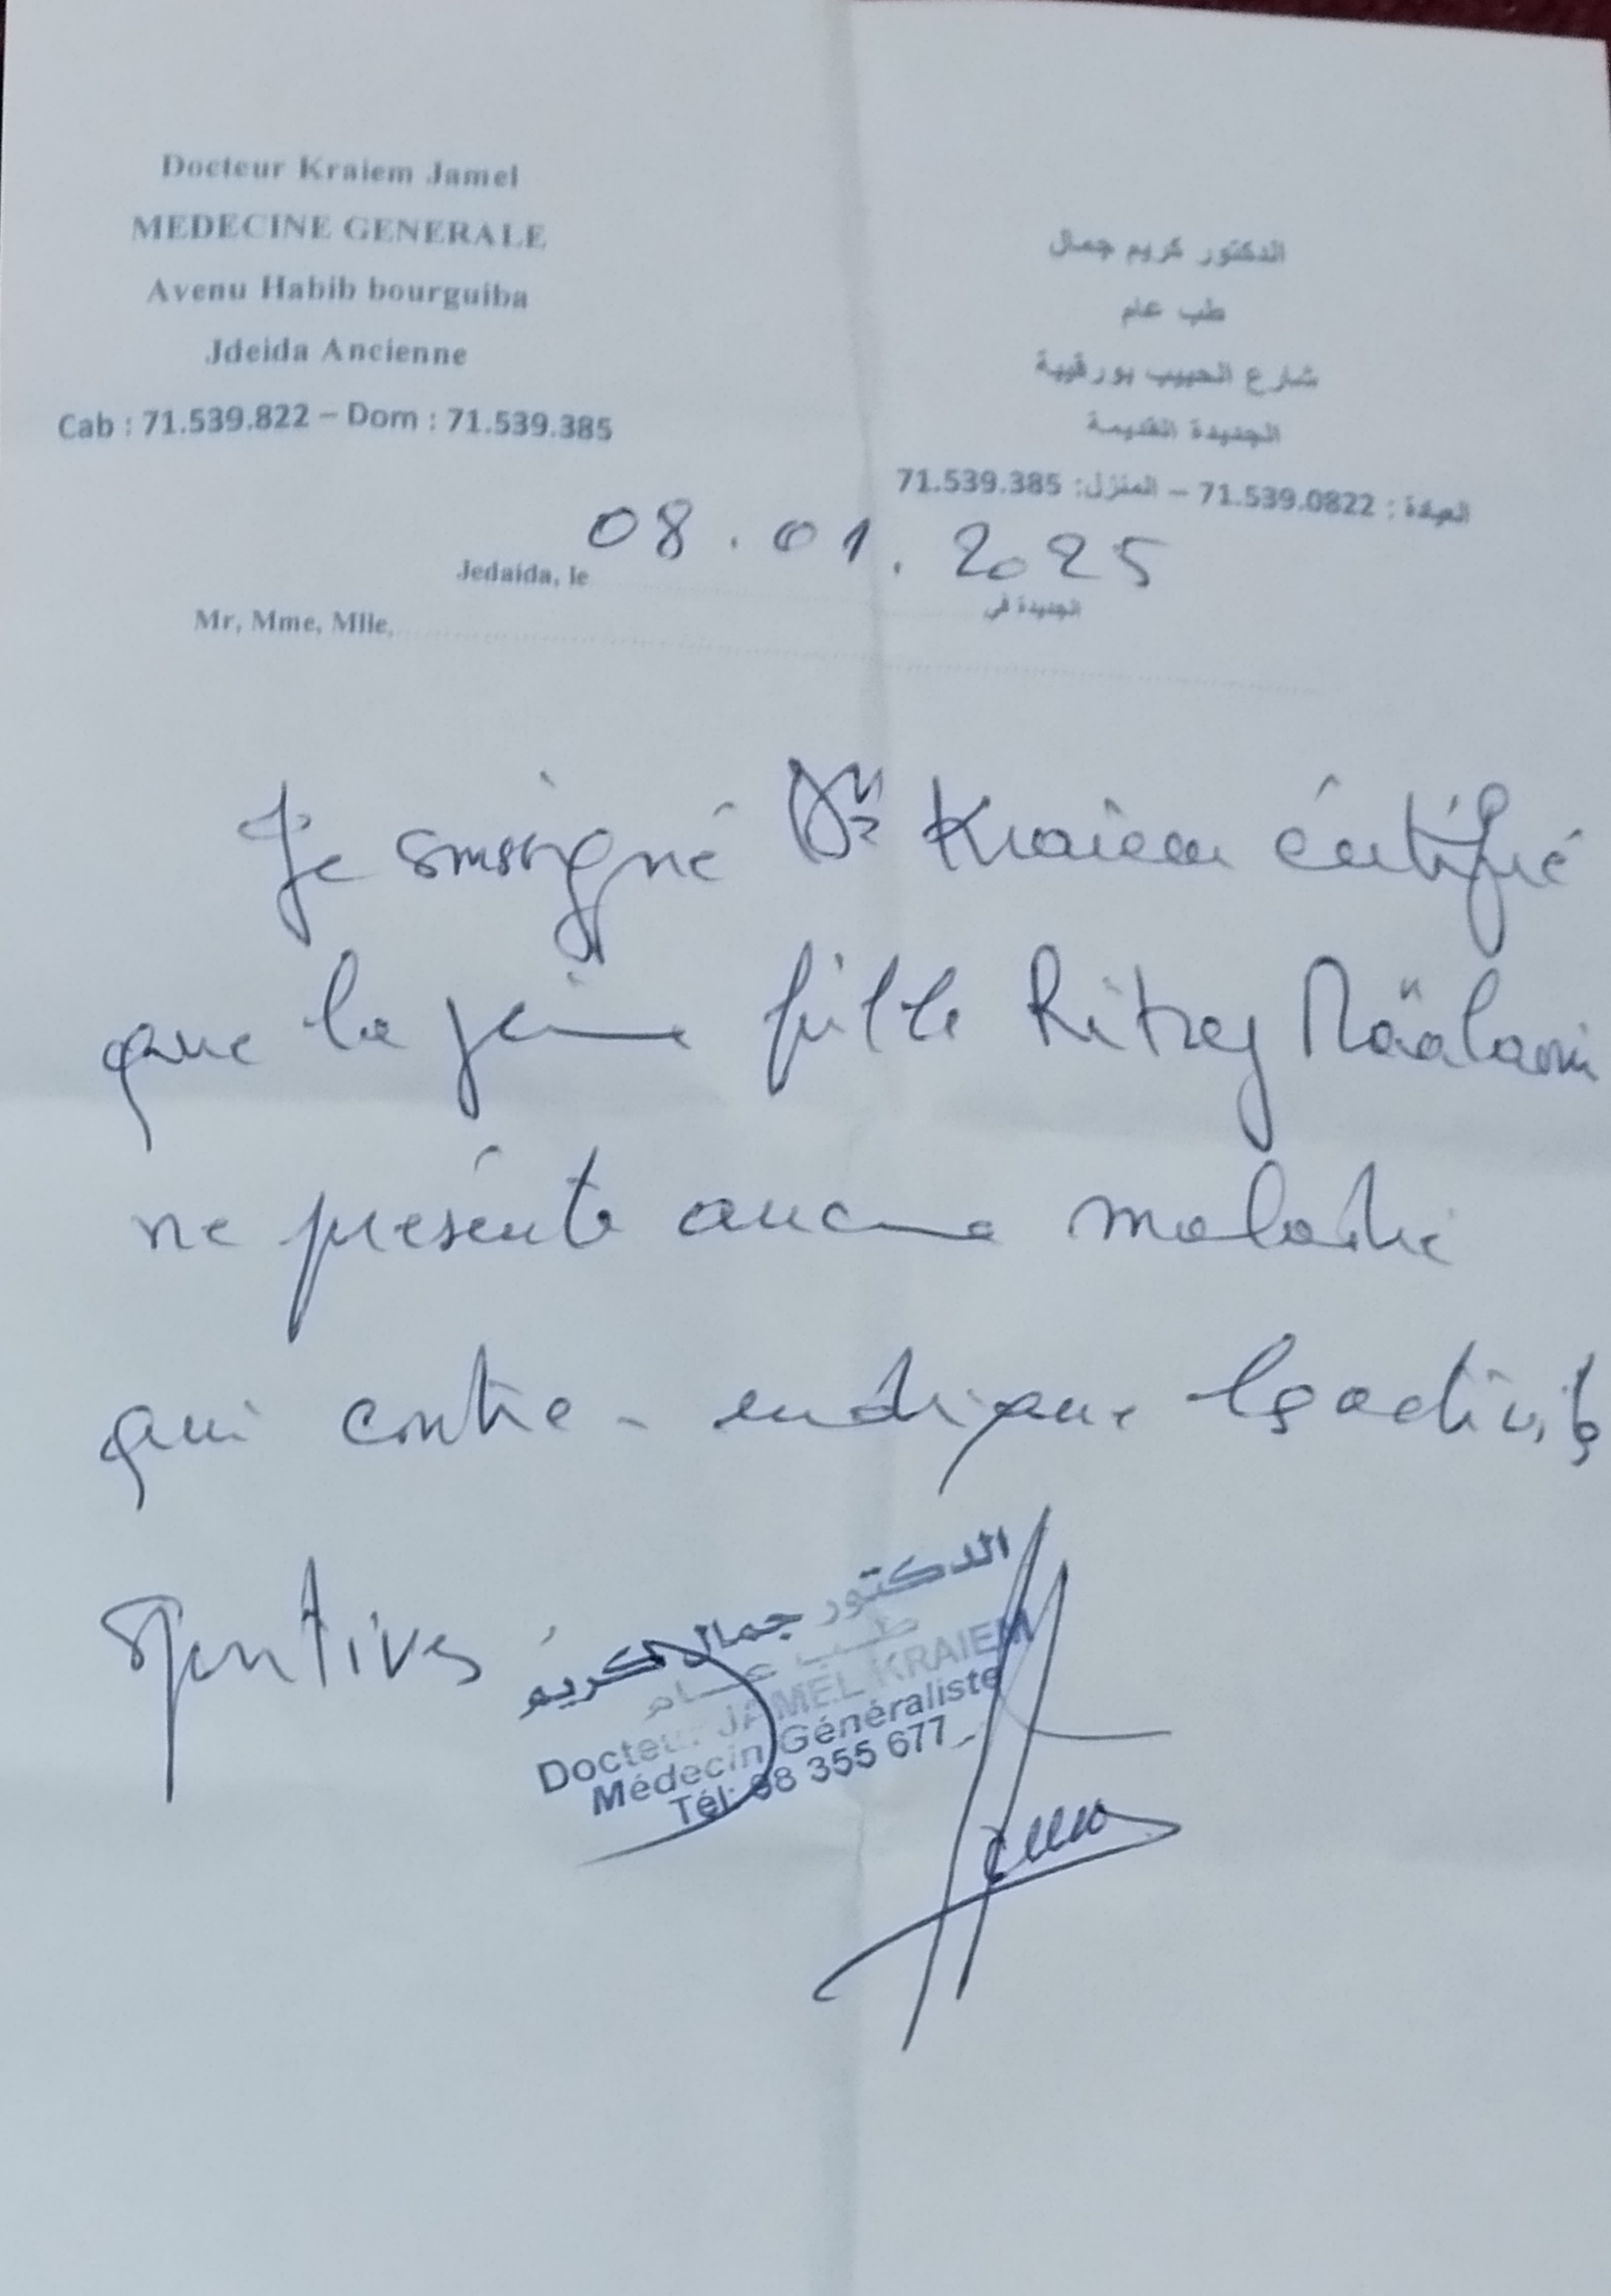 Docteur Kraiem Jamel
MEDECINE GENERALE
Avenu Habib bourguiba
Jdeida Ancienne
Cab : 71.539.822 – Dom : 71.539.385
الدكتور كريم جمال
طب عام
شارع الحبيب بورقيبة
الجديدة القديمة
العيادة : 71.539.0822 – المنزل: 71.539.385
Jedaida, le 08.01.2025 الجديدة في
Mr, Mme, Mlle,
Je soussigné Dr Kraiem certifié
que la jeune fille
ne présente aucune maladie
qui contre-indique les activités
sportives.
الدكتور جمال كريم
طب عام
Docteur JAMEL KRAIEM
Médecin Généraliste
Tél: 98 355 677